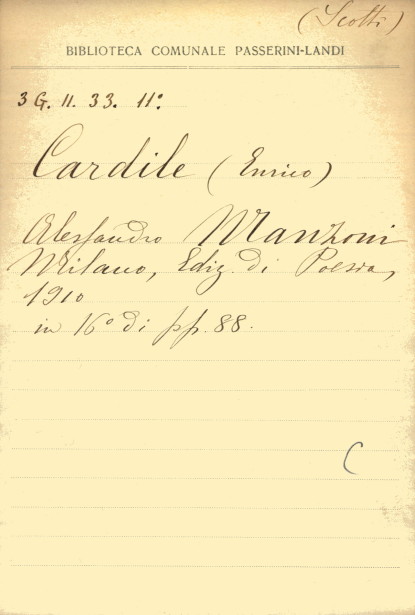 (Scotti)
BIBLIOTECA COMUNALE PASSERINI-LANDI
3 G. II. 33. 11°.
Cardile (Enrico)
Alessandro Manzoni
Milano, Ediz. di Poesia,
1910
in 16° di pp. 88.
C